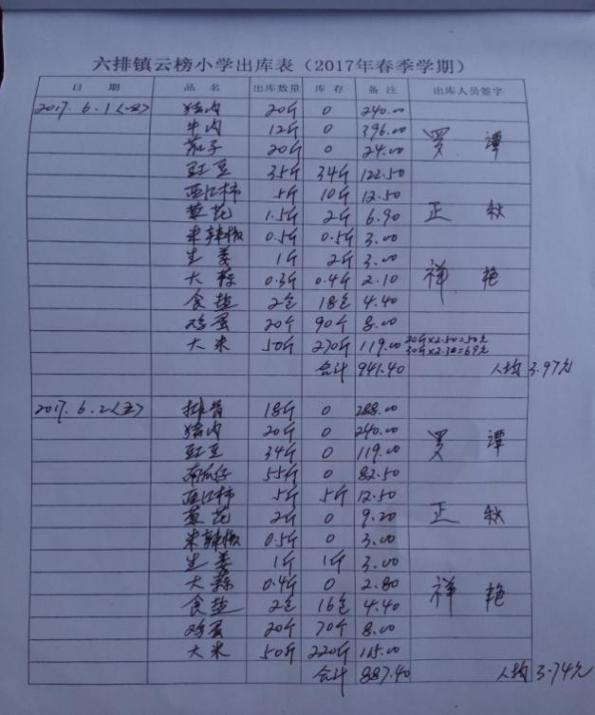 六排镇云榜小学出库表（2017年春季学期）
日 期 品 名 出库数量 库 存 备 注 出库人员签字
2017.6.1<四> 猪肉 20斤 0 240.00
牛肉 12斤 0 396.00 罗 谭
茄子 20斤 0 24.00
豇豆 35斤 34斤 122.50
西红柿 5斤 10斤 12.50
葱花 1.5斤 2斤 6.90 正 秋
米辣椒 0.5斤 0.5斤 3.00
生姜 1斤 2斤 3.00
大蒜 0.3斤 0.4斤 2.10 祥 艳
食盐 2包 18包 4.40
鸡蛋 20个 90个 8.00
大米 50斤 270斤 119.00 20斤×2.50=50元
30斤×2.30=69元
合计 941.40 人均3.97元
2017.6.2<五> 排骨 18斤 0 288.00
猪肉 20斤 0 240.00 罗 谭
豇豆 34斤 0 119.00
南瓜仔 55斤 0 82.50
西红柿 5斤 5斤 12.50
葱花 2斤 0 9.20 正 秋
米辣椒 0.5斤 0 3.00
生姜 1斤 1斤 3.00
大蒜 0.4斤 0 2.80 祥 艳
食盐 2包 16包 4.40
鸡蛋 20个 70个 8.00
大米 50斤 220斤 115.00
合计 887.40 人均3.74元